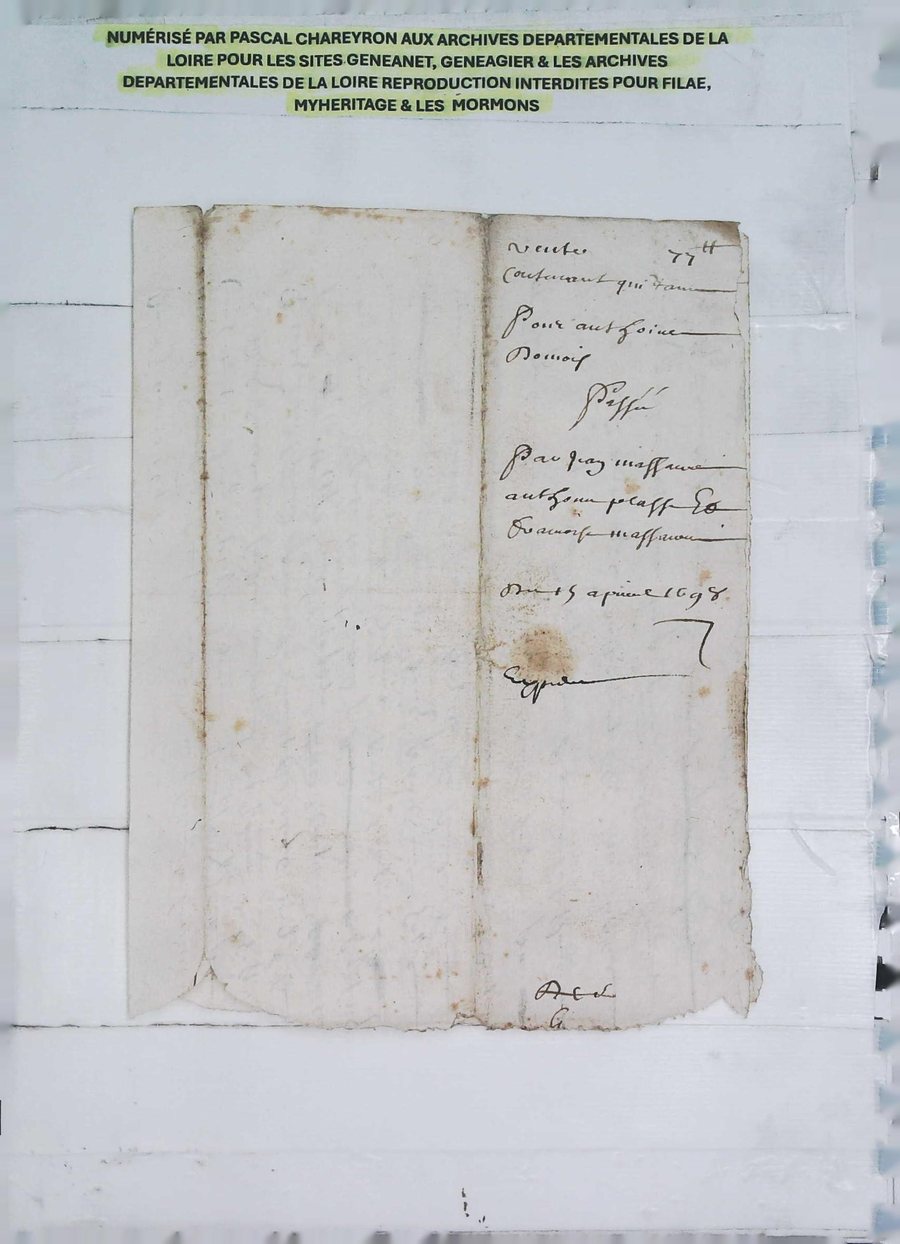 NUMÉRISÉ PAR PASCAL CHAREYRON AUX ARCHIVES DEPARTEMENTALES DE LA
LOIRE POUR LES SITES GENEANET, GENEAGIER & LES ARCHIVES
DEPARTEMENTALES DE LA LOIRE REPRODUCTION INTERDITES POUR FILAE,
MYHERITAGE & LES MORMONS
vente 77tt
Contenant quittance
Pour anthoine
Passé
Par Jean
anthoine Et
francoise
Du 15 apvril 1698